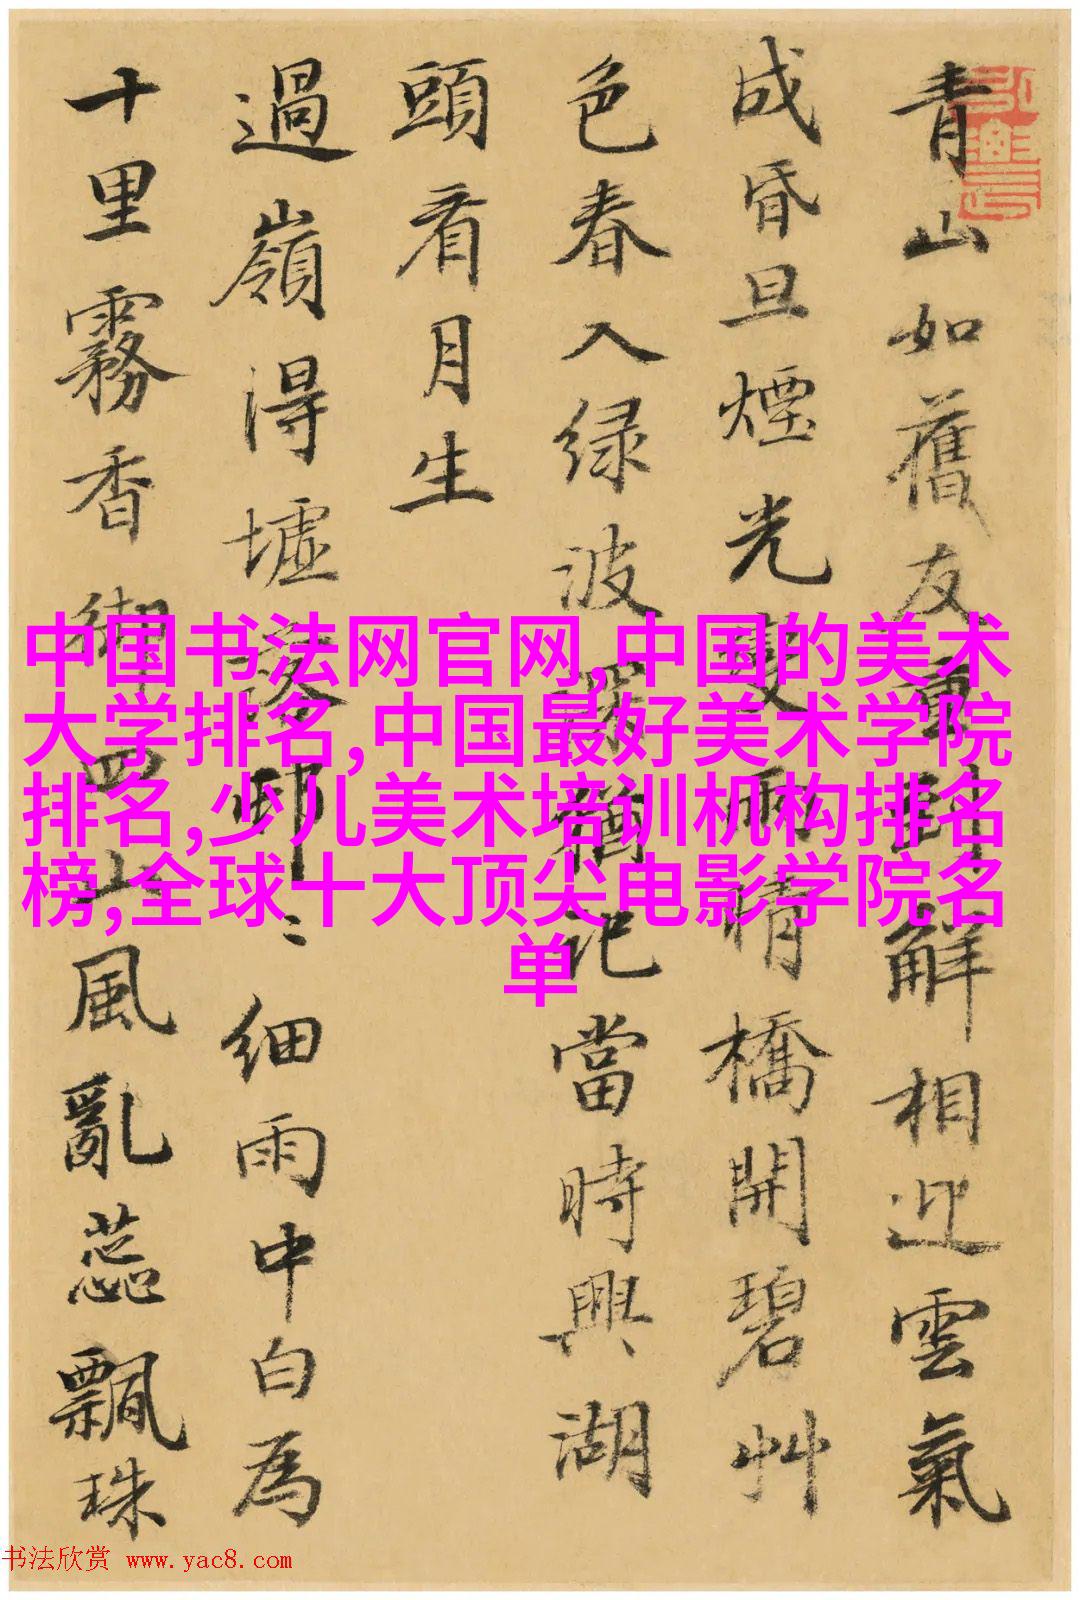 青山如舊友重到解相迎雲氣
成昏旦煙光變雨晴橋開碧艸
色春入绿波深猶记當時興湖
頭看月生
過嶺得墟落耶〻细雨中白為
十里霧香御四山風亂蕊飄珠
中国书法网官网,中国的美术
大学排名,中国最好美术学院
排名,少儿美术培训机构排名
榜,全球十大顶尖电影学院名
单
书法欣赏 www.yac8.com